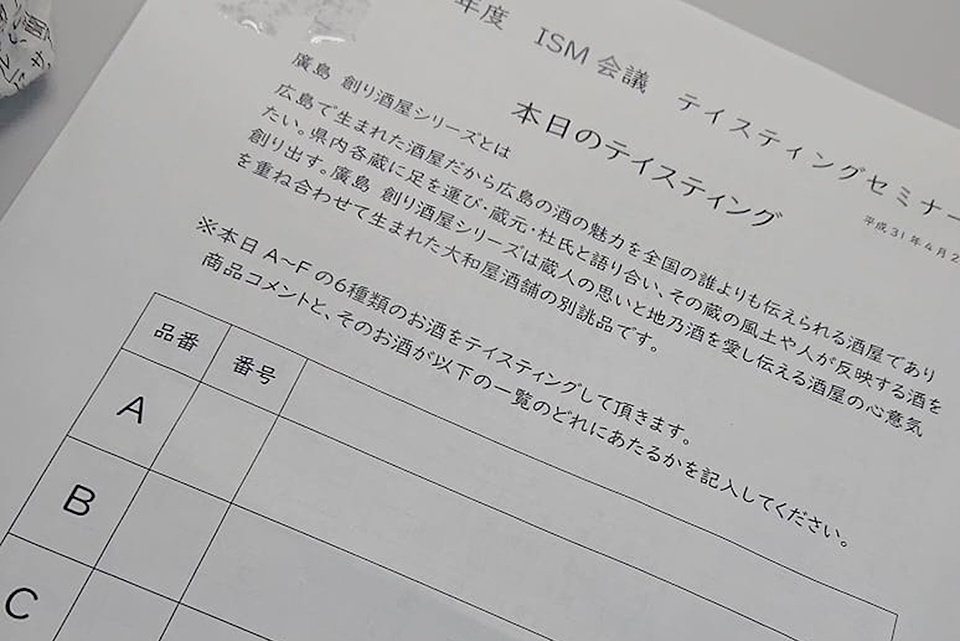 年度 ISM 会議 テイスティングセミナー
本日のテイスティング
平成31年4月2
廣島 創り酒屋シリーズとは
広島で生まれた酒屋だから広島の酒の魅力を全国の誰よりも伝えられる酒屋であり
たい。県内各蔵に足を運び・蔵元・杜氏と語り合い、その蔵の風土や人が反映する酒を
創り出す。廣島 創り酒屋シリーズは蔵人の思いと地乃酒を愛し伝える酒屋の心意気
を重ね合わせて生まれた大和屋酒舗の別誂品です。
※本日 A～F の6種類のお酒をテイスティングして頂きます。
商品コメントと、そのお酒が以下の一覧のどれにあたるかを記入してください。
品番 番号
A
B
C